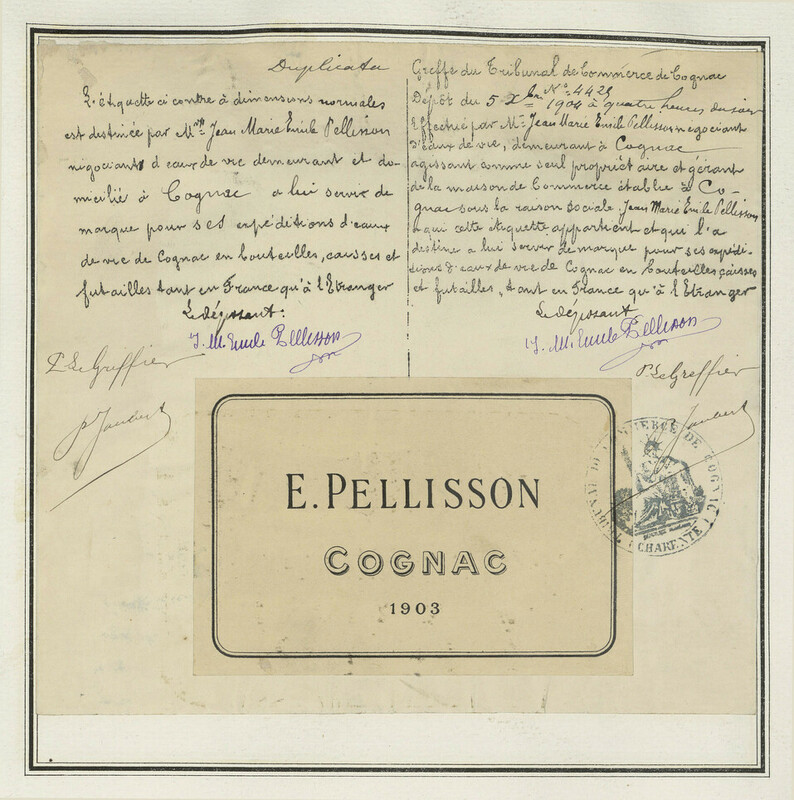 Duplicata
L'étiquette ci contre à dimensions normales
est destinée par Mr Jean Marie Emile Pellisson
negociant d'eaux de vie demeurant et do-
micilié à Cognac a lui servir de
marque pour ses expéditions d'eaux
de vie de Cognac en bouteilles, caisses et
futailles tant en France qu'à l'Etranger
Le déposant:
J. M. Emile Pellisson
P. Le Greffier
Greffe du Tribunal de Commerce de Cognac
Dépôt du 5 Xbre 1904 à quatre heures du soir
No. 4425
Effectué par Mr Jean Marie Emile Pellisson negociant
d'eaux de vie, demeurant à Cognac
agissant comme seul propriétaire et gérant
de la maison de Commerce établie à Co-
gnac sous la raison sociale Jean Marie Emile Pellisson
a qui cette étiquette appartient et qui l'a
destine a lui servir de marque pour ses expédi-
tions d'eaux de vie de Cognac en bouteilles caisses
et futailles, tant en France qu'à l'Etranger
Le déposant
J. M. Emile Pellisson
P. Le Greffier
E. PELLISSON
COGNAC
1903
TRIBUNAL DE COMMERCE DE COGNAC
(CHARENTE)